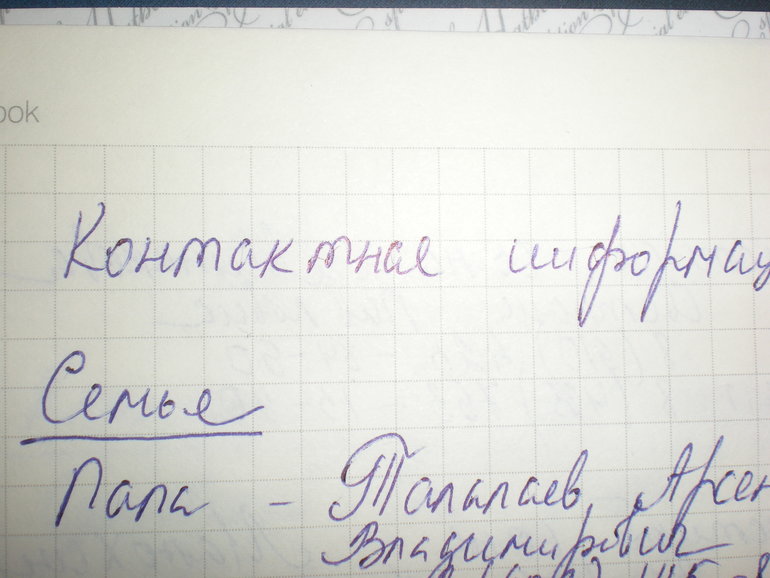 ook
Контактная информац
Семья
Папа - Талалаев Арсен
Владимирович